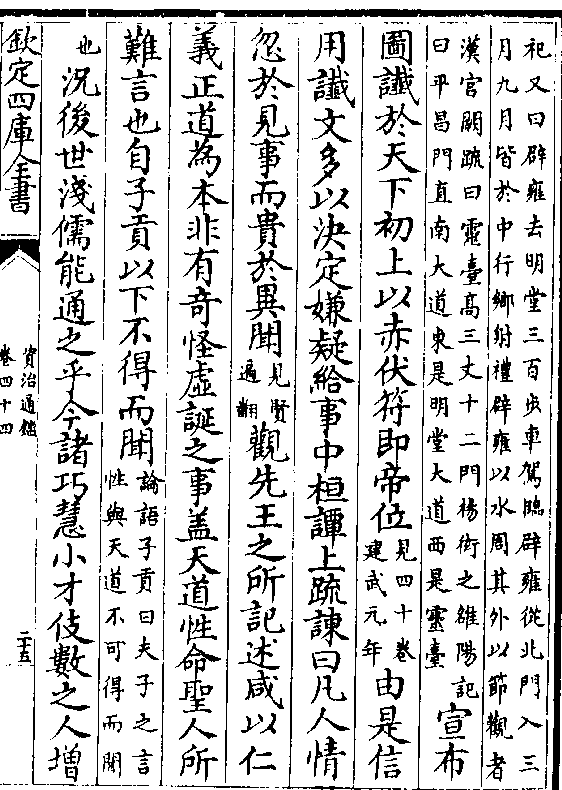 祀又曰辟雍去明堂三百步車駕臨辟雍從北門入三
月九月皆於中行鄉射禮辟雍以水周其外以節觀者
漢官闕疏曰靈臺高三丈十二門楊衒之雒陽記
曰平昌門直南大道東是明堂大道西是靈臺
宣布
圖讖於天下初上以赤伏符即帝位
見四十卷
建武元年
由是信
用讖文多以決定嫌疑給事中桓譚上疏諫曰凡人情
忽於見事而貴於異聞
見賢
遍翻
觀先王之所記述咸以仁
義正道為本非有奇怪虛誕之事蓋天道性命聖人所
難言也自子貢以下不得而聞
論語子貢曰夫子之言
性與天道不可得而聞
也
況後世淺儒能通之乎今諸巧慧小才伎數之人增
欽定四庫全書
資治通鑑
卷四十四
二十五